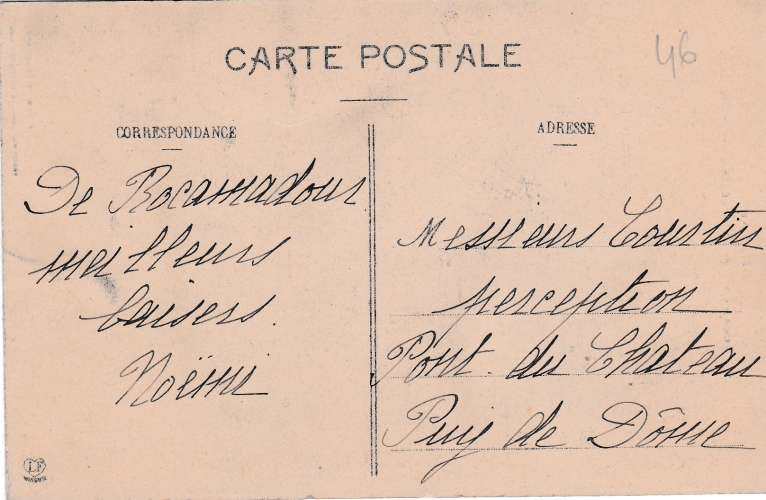 CARTE POSTALE
46
CORRESPONDANCE
De Rocamadour
meilleurs
baisers.
Noëmi
LF
ADRESSE
Messieurs Courtin
perception
Pont. du Chateau
Puy de Dôme